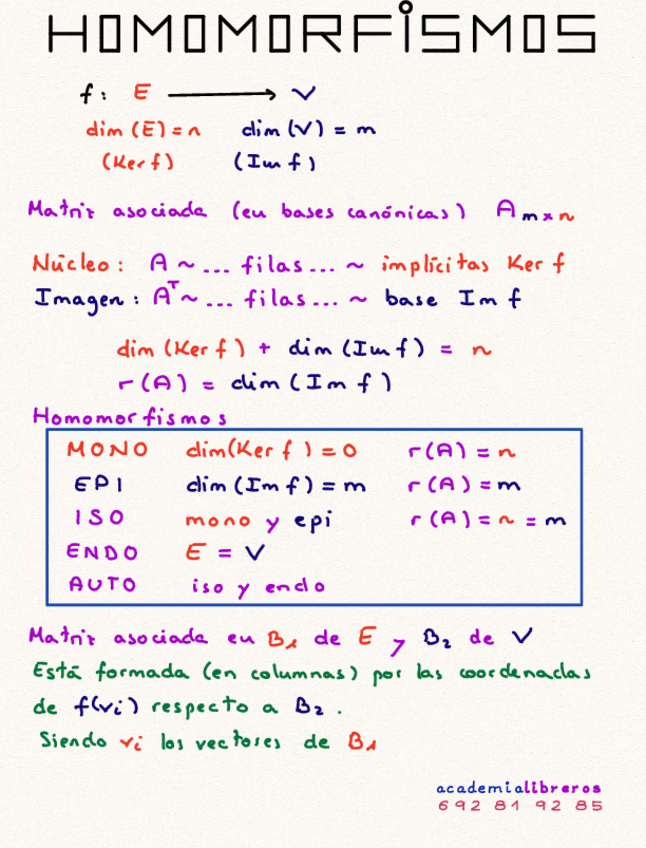 HOMOMORFISMOS
f: E ⟶ V
dim (E) = n dim (V) = m
(Ker f) (Im f)
Matriz asociada (en bases canónicas) A m×n
Núcleo: A ~ ... filas ... ~ implícitas Ker f
Imagen: Aᵀ ~ ... filas ... ~ base Im f
dim (Ker f) + dim (Im f) = n
r (A) = dim (Im f)
Homomorfismos
MONO dim(Ker f) = 0 r (A) = n
EPI dim (Im f) = m r (A) = m
ISO mono y epi r (A) = n = m
ENDO E = V
AUTO iso y endo
Matriz asociada en B₁ de E y B₂ de V
Está formada (en columnas) por las coordenadas
de f(vᵢ) respecto a B₂.
Siendo vᵢ los vectores de B₁
academialibreros
692 81 92 85